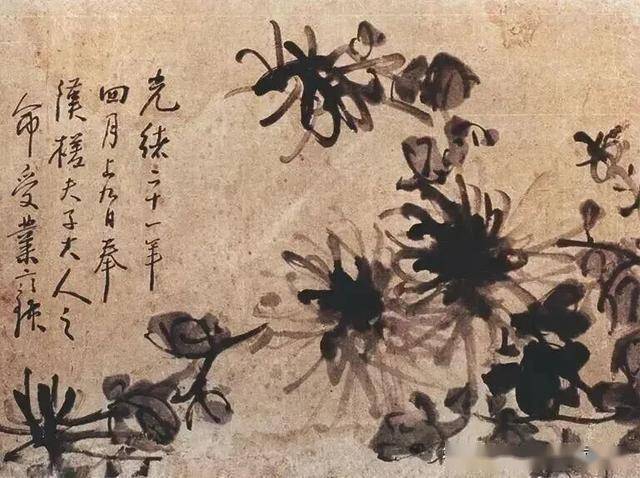 光緒二十一年
四月上九日奉
漢槎夫子大人之
命受業